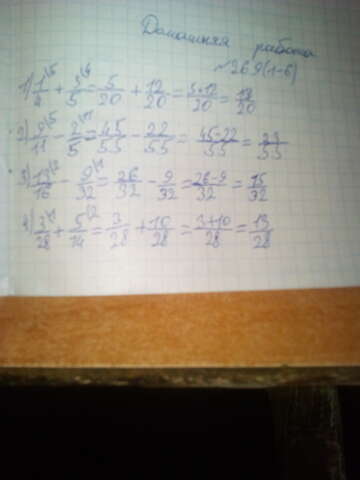 Домашняя работа
№269(1-6)
1) 1/4 \5 + 3/5 \4 = 5/20 + 12/20 = 5+12/20 = 17/20
2) 9/11 \5 - 2/5 \11 = 45/55 - 22/55 = 45-22/55 = 23/55
3) 13/16 \2 - 9/32 \1 = 26/32 - 9/32 = 26-9/32 = 15/32
4) 3/28 \1 + 5/14 \2 = 3/28 + 10/28 = 3+10/28 = 13/28